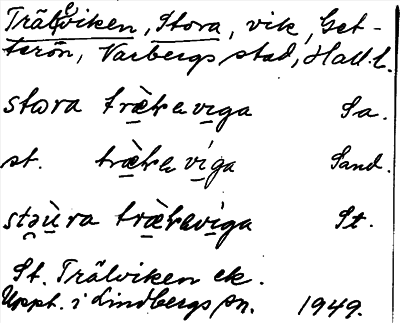 Träleviken, Stora, vik, Get-
terön, Varbergs stad, Hall. l.
stωra træ̀lɐviga Sa.
st. træ̀lɐ víga Sand.
stəù̯ra træ̀lɐvíga St.
St. Trälviken ek.
Uppt. i Lindbergs sn. 1949.